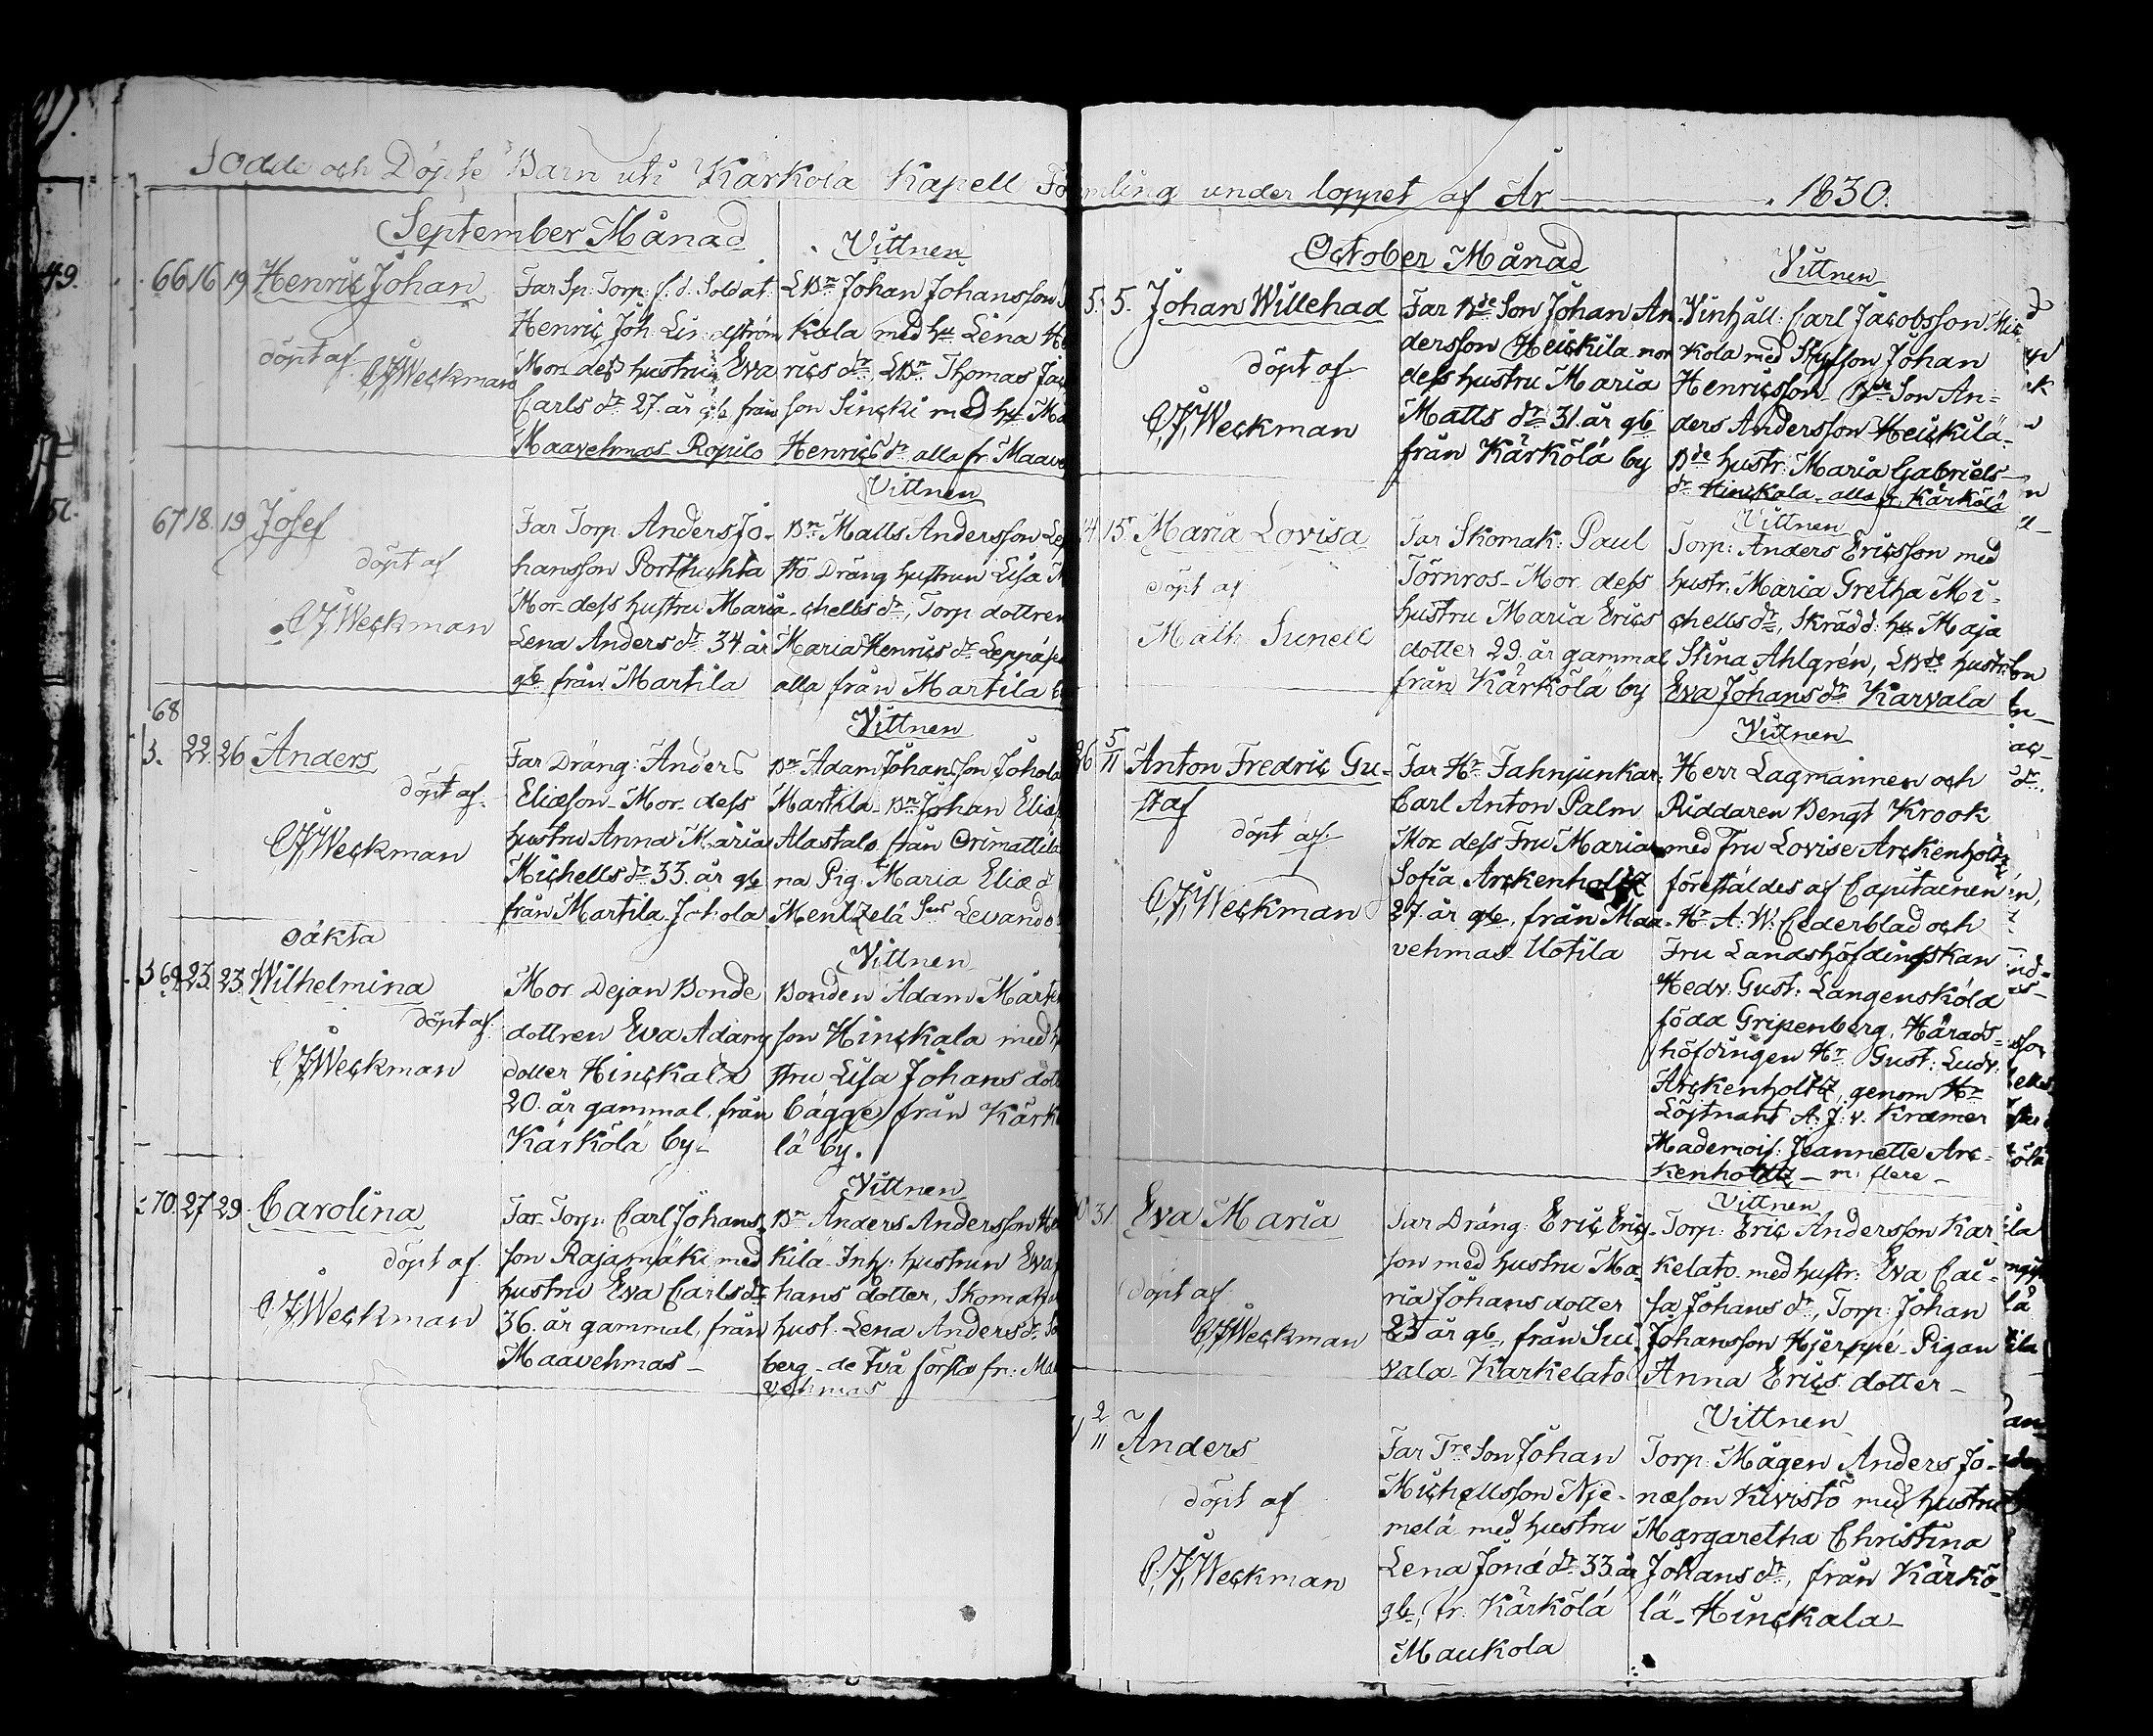 Födde och Döpte Barn uti Kärkölä Kapell Församling under loppet af År 1830.
September Månad
Vittnen
66 16 19 Henric Johan
döpt af
C J Weckman
Far Sp: Torp: f. d. Soldat
Henric Joh. Lindström
Mor dess hustru Eva
Carls dr 27. år gl. från
Maavehmas Ropilo
LBn Johan Johansson
Kala med hu Lena He
rics dr, LBn Thomas Jac
son Sincki med hu Ma
Henrics dr alla fr. Maave
Vittnen
67 18. 19 Josef
döpt af
C J Weckman
Far Torp. Anders Jo-
hansson Porthuhta
Mor dess hustru Maria
Lena Anders dr 34 år
gl. från Martila
Bn Matts Andersson Lep
stö Dräng hustrun Lisa M
chells dr, Torp. dottren
Maria Henrics dr Leppäs
alla från Martila b
Vittnen
68
3. 22. 26 Anders
döpt af
C J Weckman
Far Dräng: Anders
Eliæson Mor dess
hustru Anna Maria
Michells dr 33. år gl.
från Martila Johola
Bn Adam Johansson Johola
Martila Bn Johan Elia
Alastalo från Orimattila
na Pig: Maria Eliæ d
Mentzelä Levando
Vittnen
oäkta
3 69. 23. 23. Wilhelmina
döpt af
C J Weckman
Mor Dejan Bonde
dottren Eva Adams
dotter Hinckala
20. år gammal, från
Kärkölä by
Bonden Adam Mårten
son Hinckala med h
stru Lisa Johans dott
bägge från Kärk
lä by.
Vittnen
70. 27 29 Carolina
döpt af
C J Weckman
Far Torp: Carl Johans
son Rajamäki med
hustru Eva Carls dr
36. år gammal, från
Maavehmas
Bn Anders Andersson He
kilä Inh: hustrun Eva
hans dotter, Skomak
hust. Lena Anders dr So
berg de två första fr: Ma
vehmas
October Månad
Vittnen
5. 5. Johan Willehad
döpt af
C J Weckman
Far Bde Son Johan An-
dersson Heickilä mor
dess hustru Maria
Matts dr 31. år gl.
från Kärkölä by
Vinhåll: Carl Jacobsson Mic-
kola med Styfson Johan
Henricsson Bde Son An-
ders Andersson Heickilä
Bde hustr: Maria Gabriels
dr Hinckala alla fr. Kärkölä
Vittnen
14 15 Maria Lovisa
döpt af
Math: Sunell
Far Skomak: Paul
Törnros Mor dess
hustru Maria Erics
dotter 29. år gammal
från Kärkölä by
Torp: Anders Ericsson med
hustr: Maria Gretha Mi-
chells dr, Skrädd: hu Maja
Stina Ahlgrén, LBde hustr:
Eva Johans dr Karvala
Vittnen
26 5/11 Anton Fredric Gu-
staf
döpt af
C J Weckman
Far Hr Fahnjunkar:
Carl Anton Palm
Mor dess Fru Maria
Sofia Arckenholtz
27. år gl., från Maa-
vehmas Uotila
Herr Lagmannen och
Riddaren Bengt Krook
med Fru Lovise Arckenholtz
föreställdes af Capitainen
Hr A: W: Cederblad och
Fru Landshöfdingskan
Hedv: Gust: Langensköld
född Gripenberg, Härads-
höfdingen Hr Gust: Ludv:
Arckenholtz, genom Hr
Löjtnant A: J: v. Kræmer
Mademois: Jeannette Arc-
kenholtz m: flere
Vittnen
31 Eva Maria
döpt af
C J Weckman
Far Dräng: Eric Eric-
son med hustru Ma-
ria Johans dotter
23 år gl., från Sui-
vala Karkelato
Torp: Eric Andersson Kar
kelato med hustr: Eva Cai-
sa Johans dr, Torp: Johan
Johansson Hjerppe Pigan
Anna Erics dotter
Vittnen
2/11 Anders
döpt af
C J Weckman
Far Tre Son Johan
Michellsson Nie-
melä med hustru
Lena Jonæ dr 33. år
gl., fr. Kärkölä
Maukola
Torp: Mågen Anders Jo-
næson Kivistö med hustru
Margaretha Christina
Johans dr, från Kärkö-
lä Hinckala